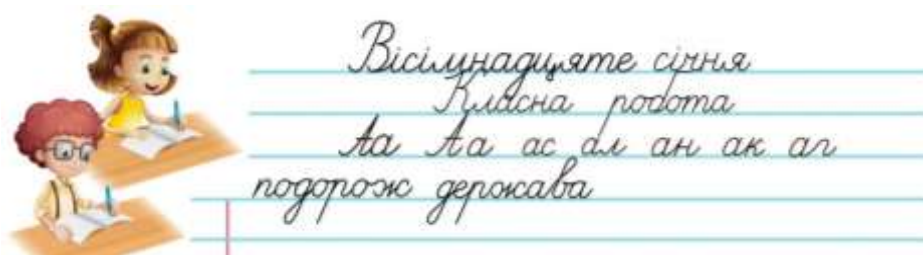 Вісімнадцяте січня
Класна робота
Аа Аа ас ал ан ак ап
подорож держава